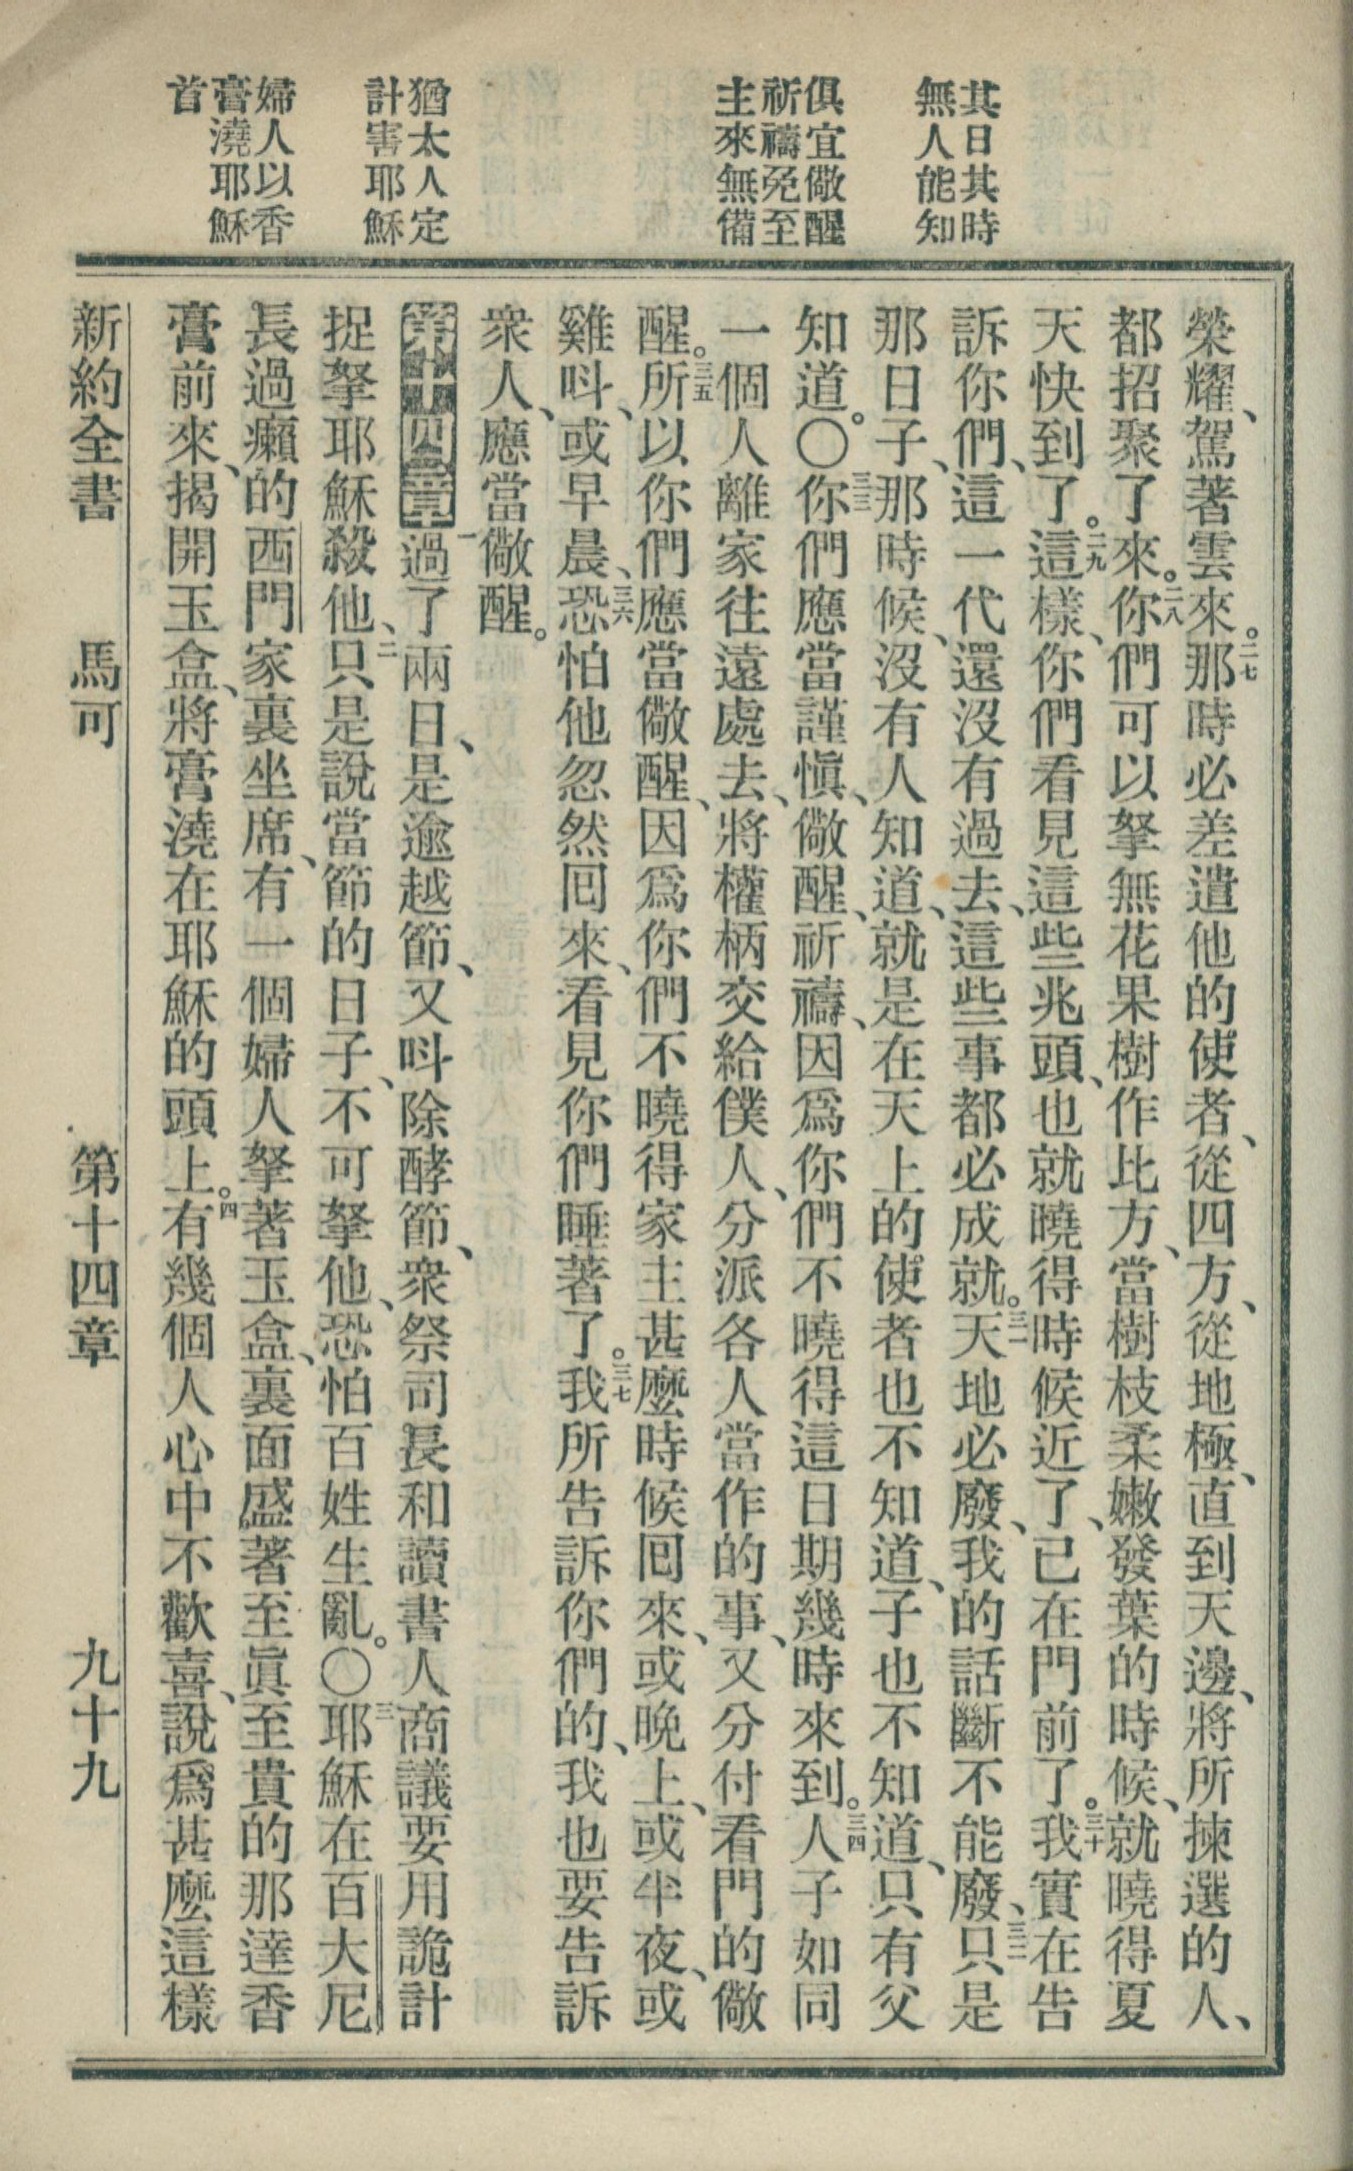 其日其時
無人能知
俱宜儆醒
祈禱免至
主來無備
猶太人定
計害耶穌
婦人以香
膏澆耶穌
首
榮耀、駕著雲來。二七那時必差遣他的使者、從四方、從地極、直到天邊、將所揀選的人、
都招聚了來。二八你們可以拏無花果樹作比方、當樹枝柔嫩發葉的時候、就曉得夏
天快到了。二九這樣、你們看見這些兆頭、也就曉得時候近了、已在門前了。三十我實在告
訴你們、這一代還沒有過去、這些事都必成就。三一天地必廢、我的話斷不能廢、三二只是
那日子、那時候、沒有人知道、就是在天上的使者也不知道、子也不知道、只有父
知道。〇三三你們應當謹愼、儆醒、祈禱、因爲你們不曉得這日期幾時來到。三四人子如同
一個人離家往遠處去、將權柄交給僕人、分派各人當作的事、又分付看門的儆
醒。三五所以你們應當儆醒、因爲你們不曉得家主甚麽時候囘來、或晚上、或半夜、或
雞呌、或早晨、三六恐怕他忽然囘來、看見你們睡著了。三七我所告訴你們的、我也要告訴
衆人、應當儆醒。
第十四章 一過了兩日、是逾越節、又呌除酵節、衆祭司長和讀書人商議要用詭計
捉拏耶穌殺他、二只是說當節的日子、不可拏他、恐怕百姓生亂。〇三耶穌在百大尼
長過癩的西門家裏坐席、有一個婦人拏著玉盒、裏面盛著至眞至貴的那達香
膏前來、揭開玉盒、將膏澆在耶穌的頭上。四有幾個人心中不歡喜、說爲甚麽這樣
新約全書 馬可 第十四章 九十九